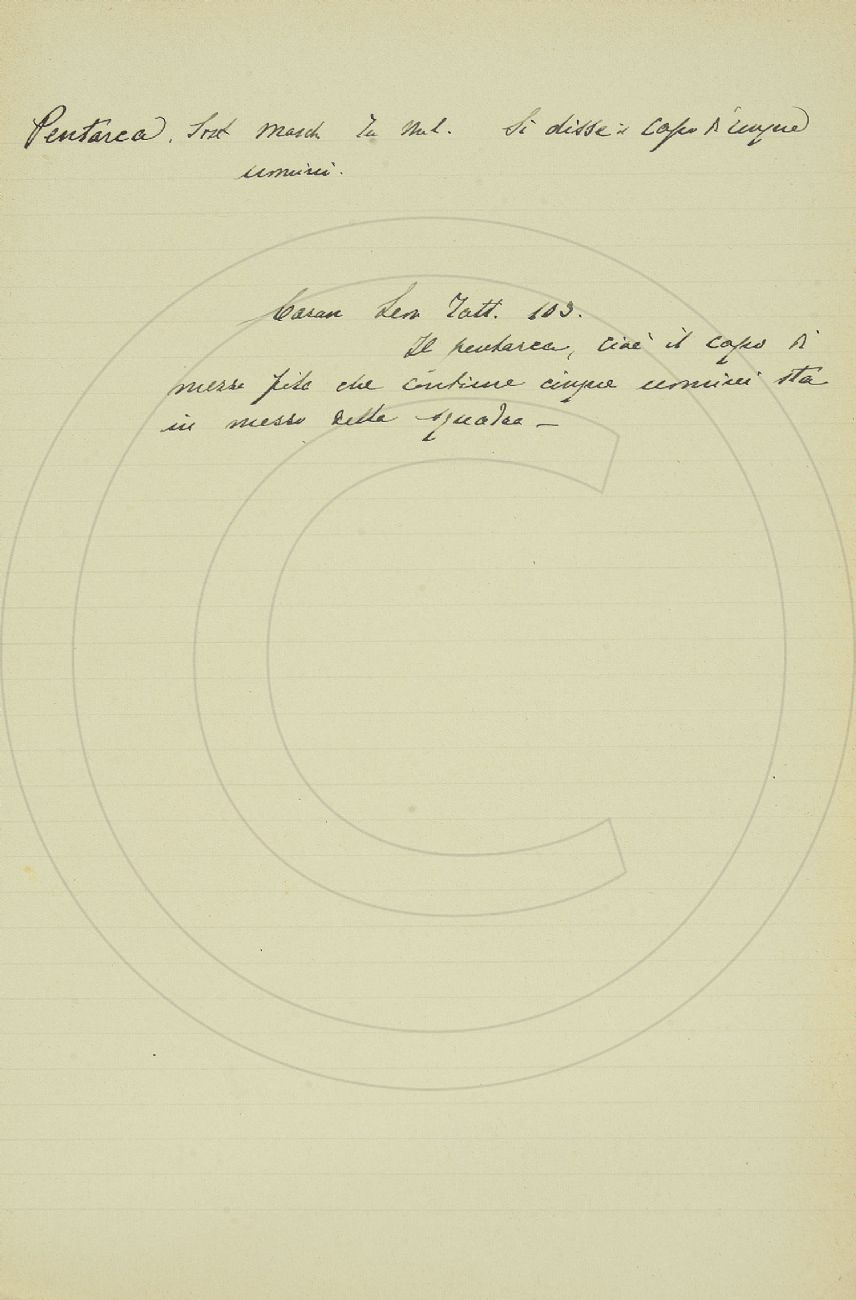 Pentarca. Sost. masch. Tu Mil. Si disse il capo di cinque
uomini.
Caran Leon Tatt. 103.
Il pentarca, cioè il capo di
mezza fila che contiene cinque uomini sta
in mezzo della squadra —